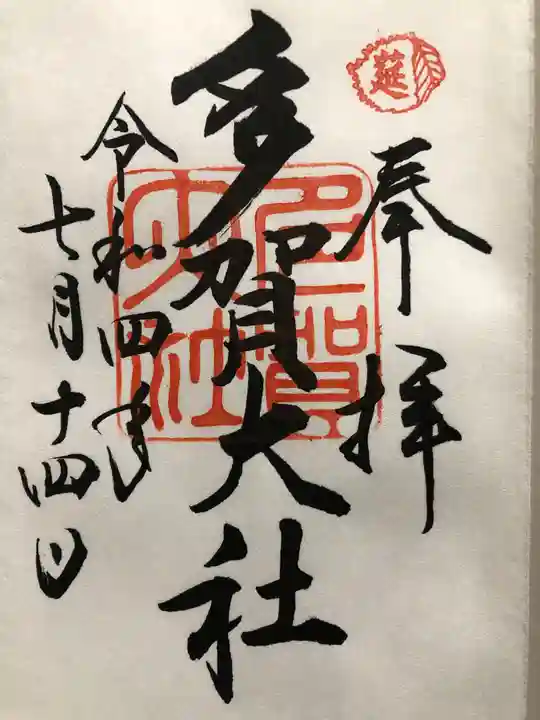 莚
奉拝
多賀大社
多賀大社
令和四年
七月十四日